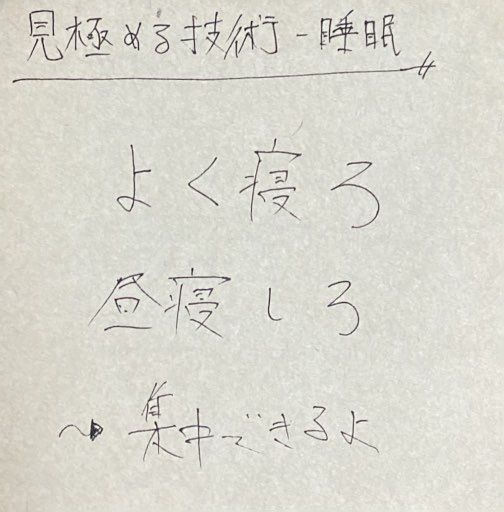 見極める技術-睡眠
よく寝ろ
昼寝しろ
→集中できるよ